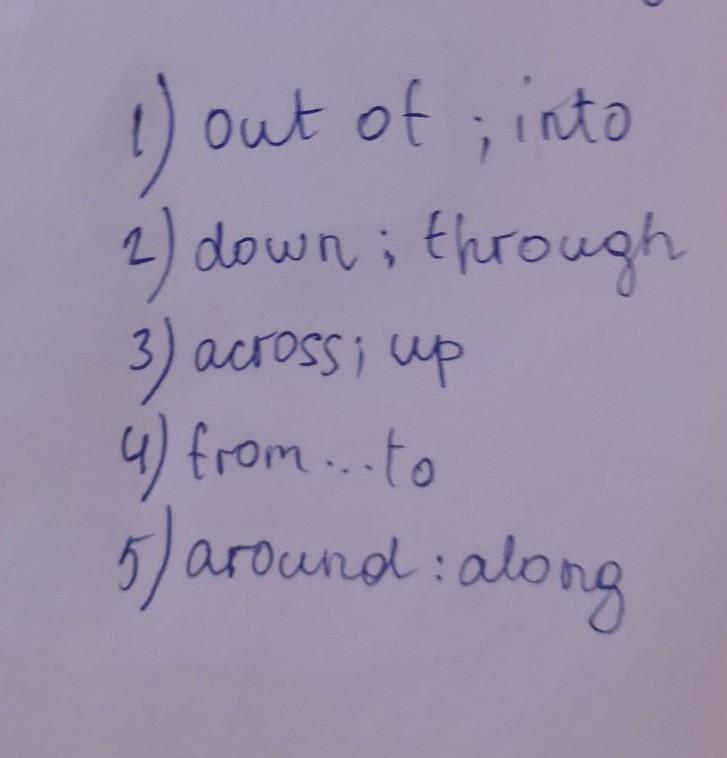 1) out of ; into
2) down ; through
3) across ; up
4) from ... to
5) around : along